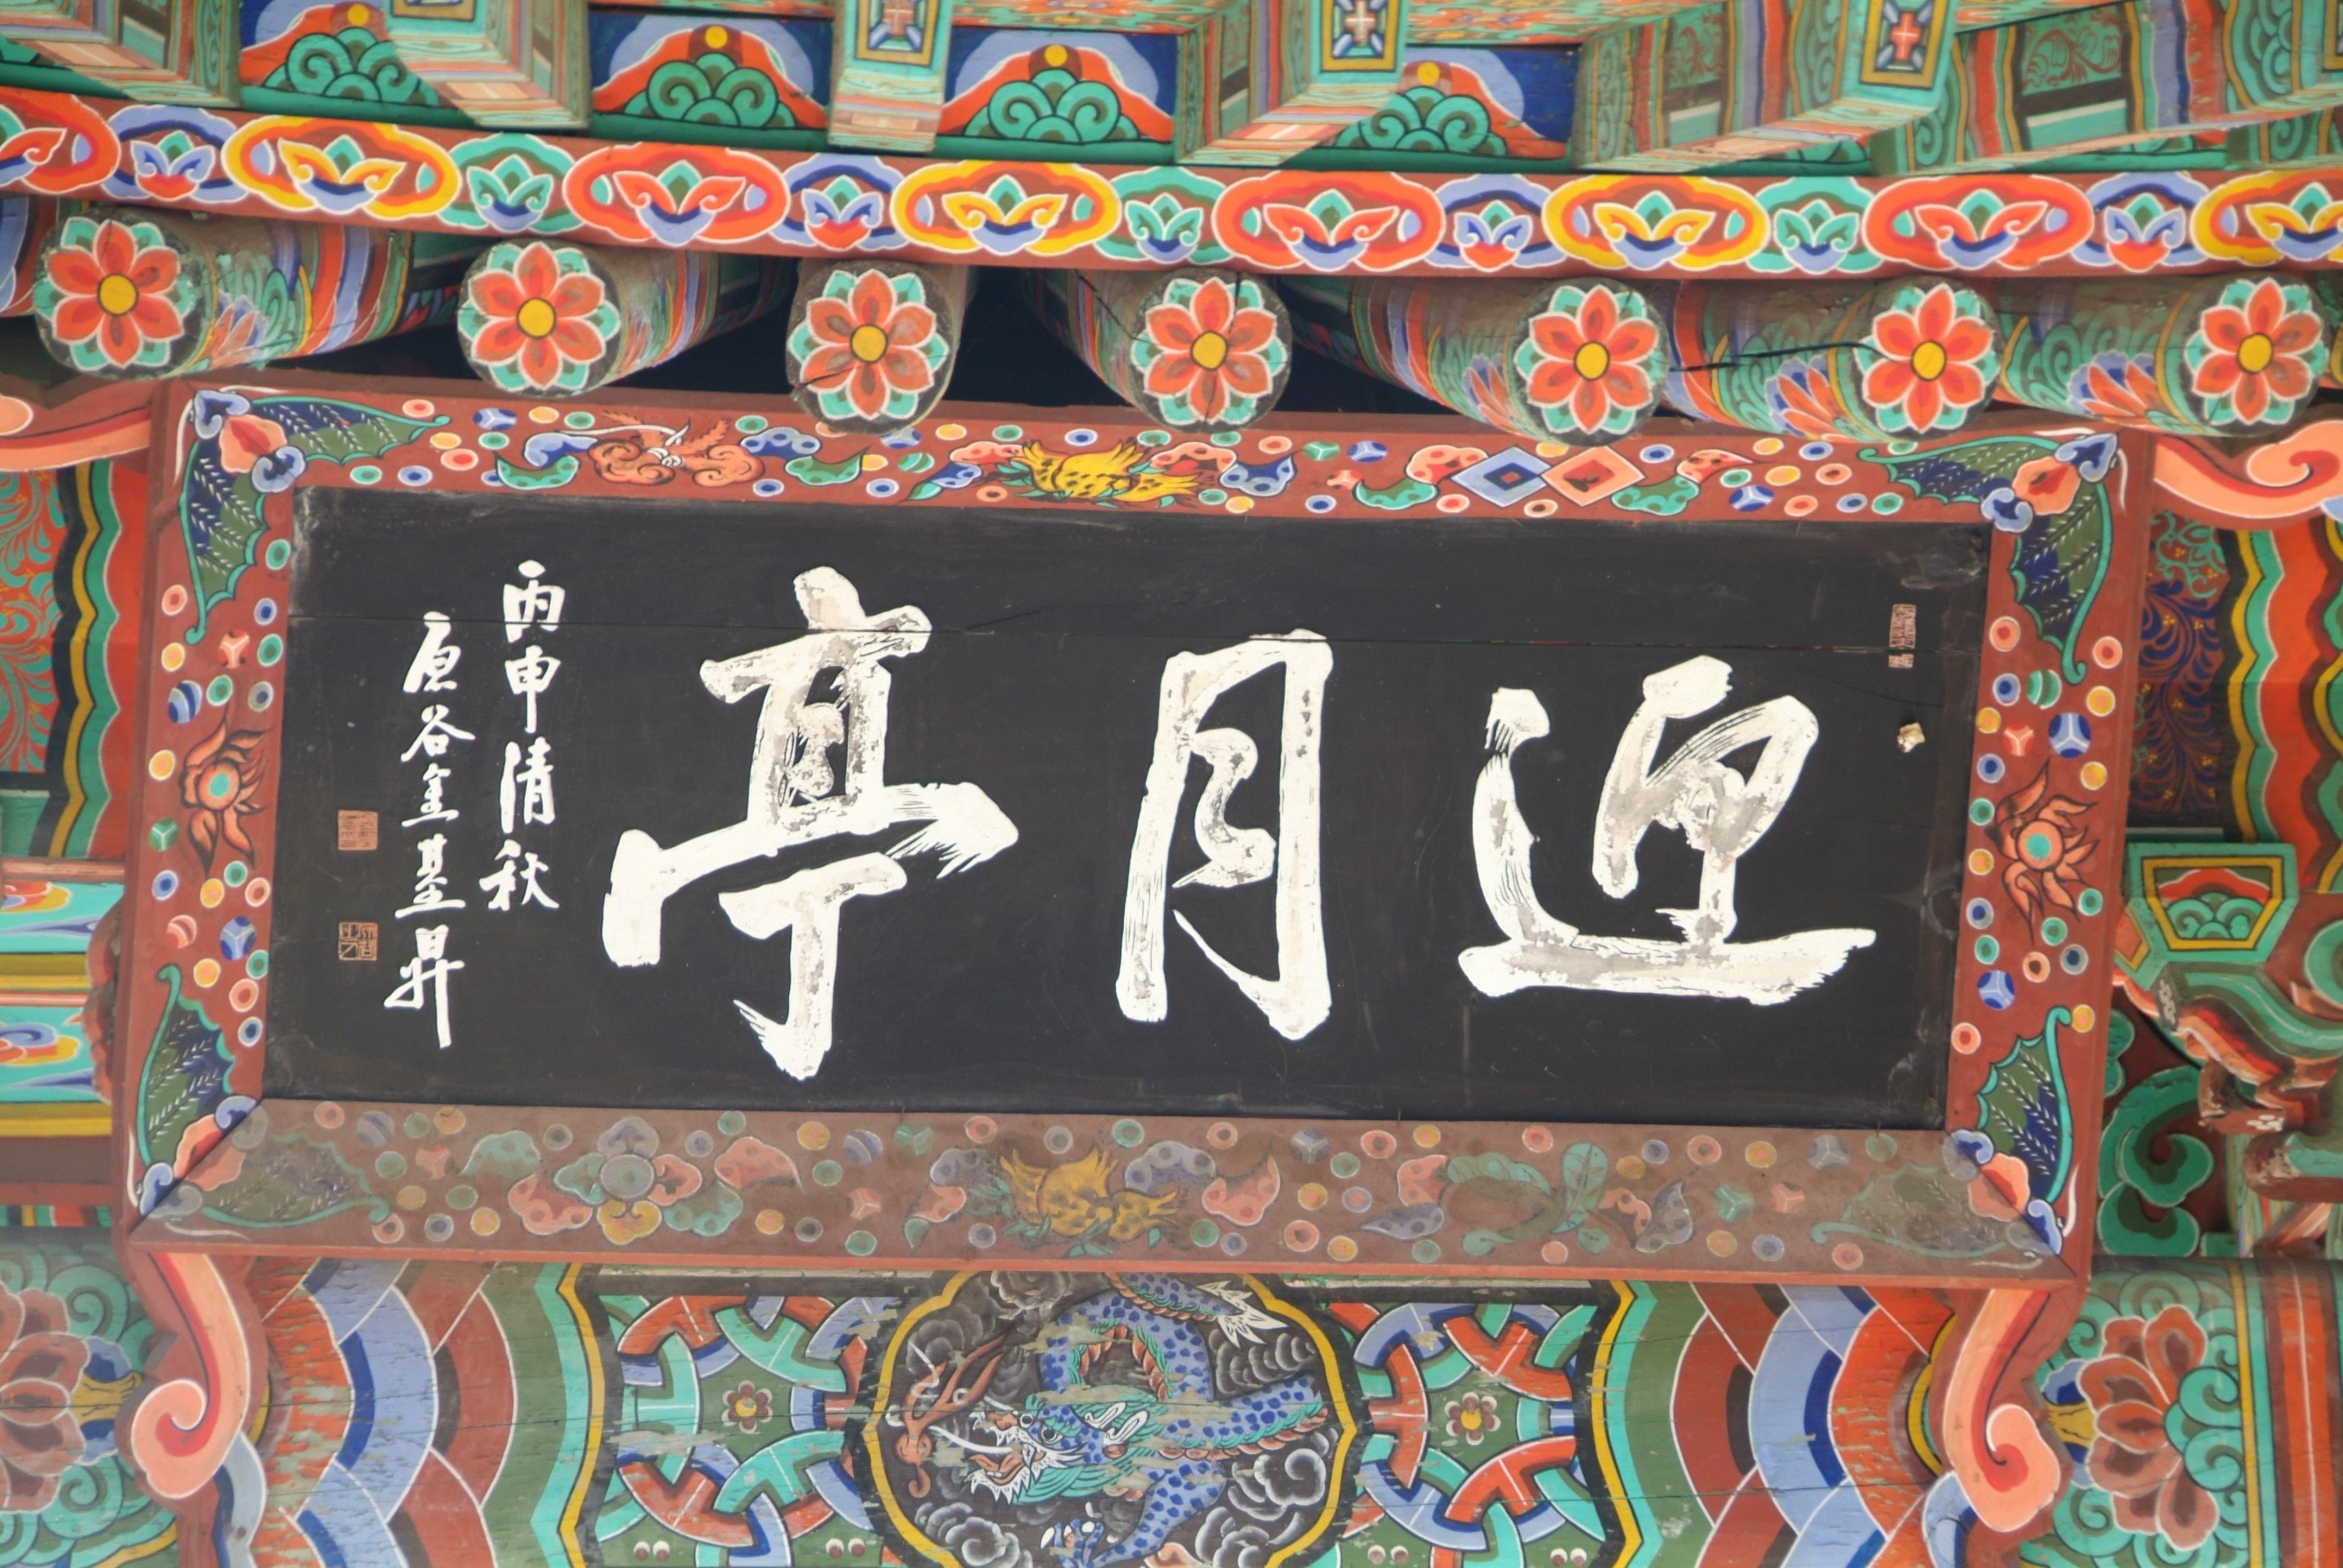 迎月亭
丙申清秋
原谷金基昇